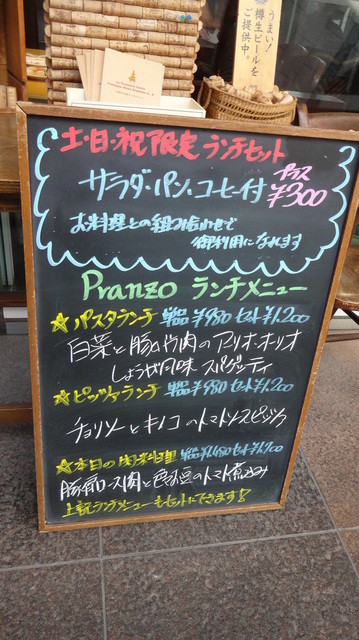 うまい!
樽生ビールを
ご提供中。
土・日・祝限定 ランチセット
サラダ・パン・コーヒー付 プラス ¥300
お料理との組み合わせで
御利用になれます
Pranzo ランチメニュー
☆パスタランチ 単品¥980 セット¥1,200
白菜と豚バラ肉のアーリオ・オーリオ
しょうが風味 スパゲッティ
☆ピッツァランチ 単品¥920 セット¥1,200
チョリソーとキノコのトマトソースピッツァ
☆本日の肉料理 単品¥1,480 セット¥1,700
豚肩ロース肉と色々お豆のトマト煮込み
上記ランチメニューもセットにできます!